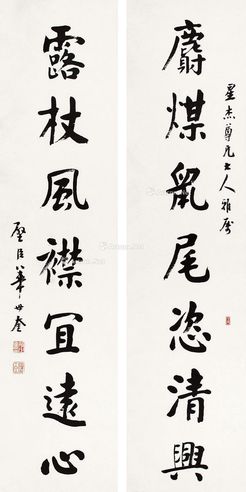 星杰尊兄大人雅属
麝煤鼠尾恣清興
露杖風襟宜遠心
璧臣華世奎